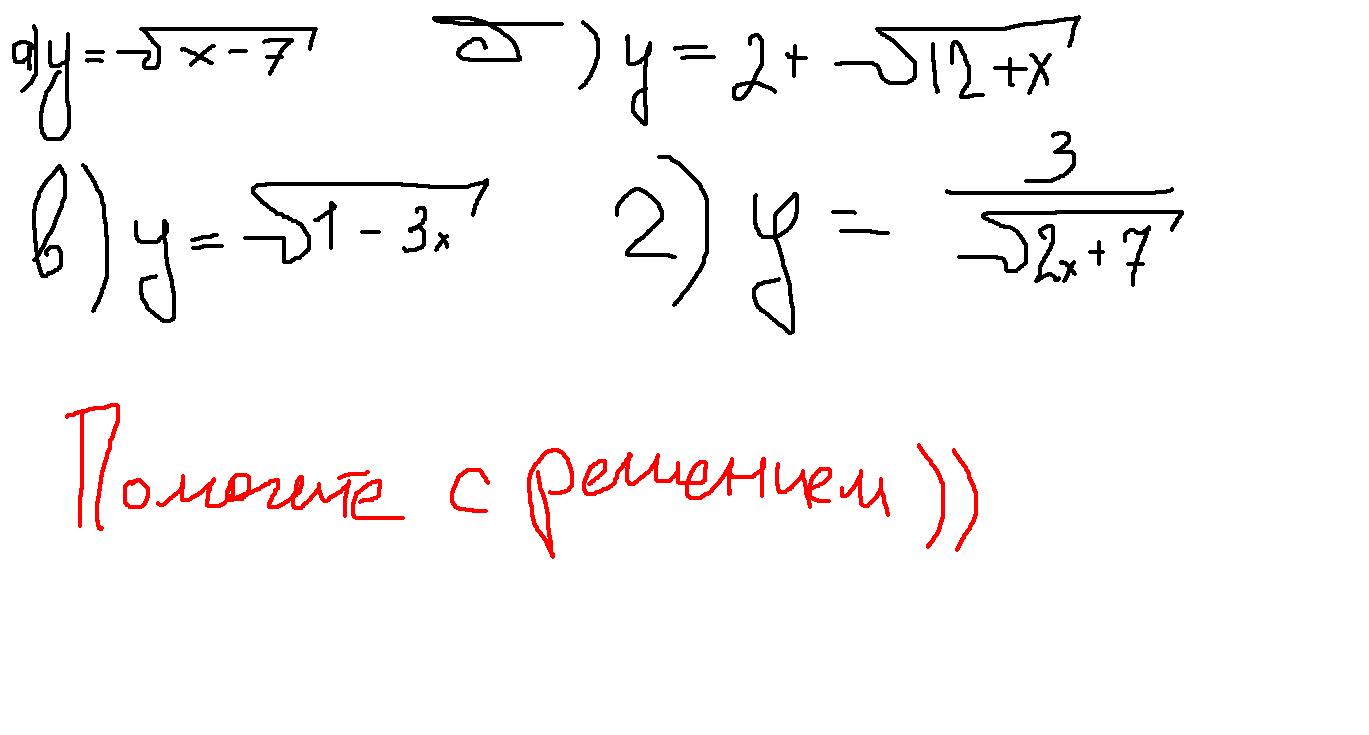 а) y = √x - 7 б) y = 2 + √12 + x
в) y = √1 - 3x г) y = 3/√2x + 7
Помогите с решением))